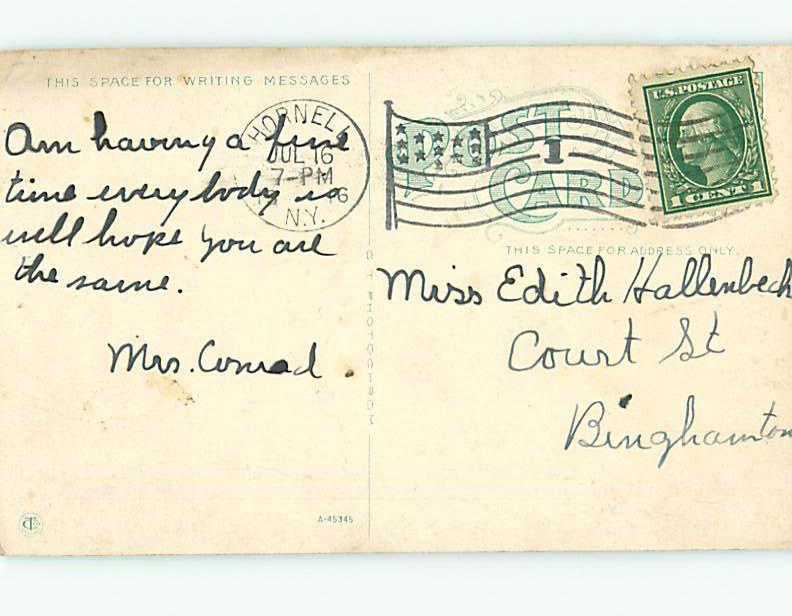 THIS SPACE FOR WRITING MESSAGES
Am having a fine
time everybody is
well hope you are
the same.
Mrs. Conrad.
HORNELL
JUL 16
7-PM
N.Y.
POST CARD
1
U.S. POSTAGE
1 CENT 1
THIS SPACE FOR ADDRESS ONLY.
Miss Edith Hallenbeck
Court St
Binghamton
C T PHOTOCHROM
A-45345